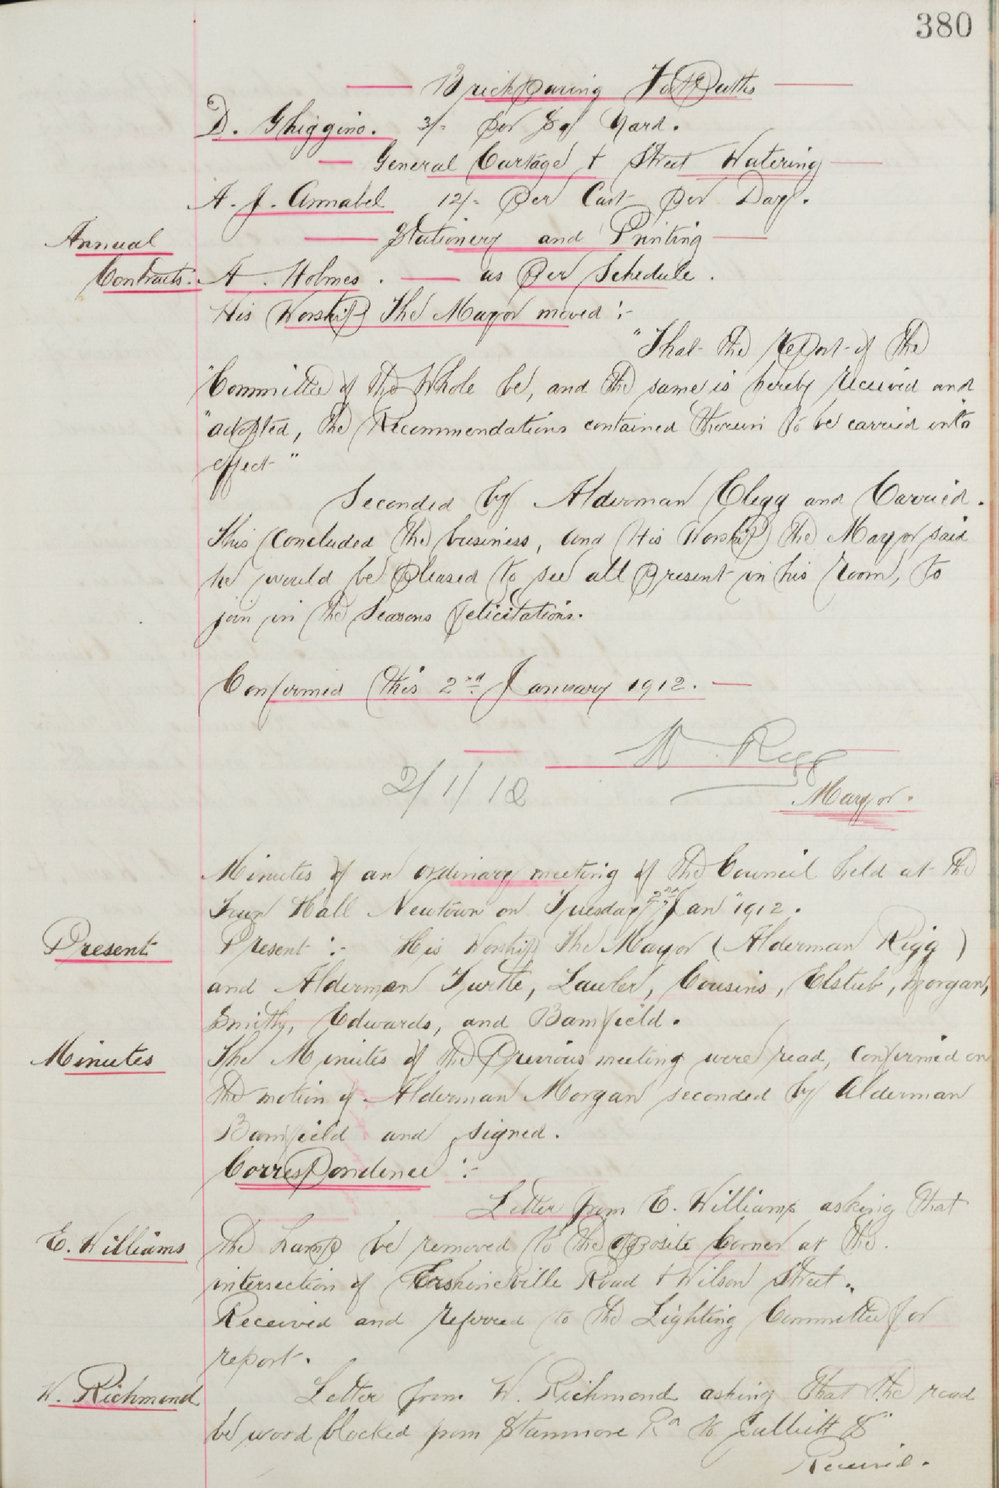 380
Brick Paving Foot Paths
D. Ghiggino. 3/- Per Sq Yard.
General Cartage & Street Watering
A. J. Annabel 12/- Per Cart Per Day.
Stationery and Printing
Annual
Contracts. A. Holmes. as Per Schedule.
His Worship The Mayor moved :-
"That the report of the
"Committee of the Whole be, and the same is hereby received and
"adopted, the Recommendations contained therein to be carried into
effect"
Seconded by Alderman Clegg and Carried.
This concluded the business, and His Worship the Mayor said
he would be pleased to see all present in his room, to
join in the Seasons felicitations.
Confirmed this 2nd January 1912.
W. Rigg
2/1/12
Mayor.
Minutes of an ordinary meeting of the Council held at the
Town Hall Newtown on Tuesday 2nd Jan 1912.
Present
Present :- His Worship The Mayor (Alderman Rigg)
and Alderman Turtle, Lawler, Cousins, Elstub, Morgan,
Smith, Edwards, and Bamfield.
Minutes
The Minutes of the Previous meeting were read, confirmed on
the motion of Alderman Morgan seconded by Alderman
Bamfield and signed.
Correspondence :-
Letter from E. Williams asking that
E. Williams
the Lamp be removed to the opposite corner at the
intersection of Erskineville Road & Wilson Street.
Received and referred to the Lighting Committee for
report.
W. Richmond
Letter from W. Richmond asking that the road
be wood blocked from Stanmore Rd to
Received.